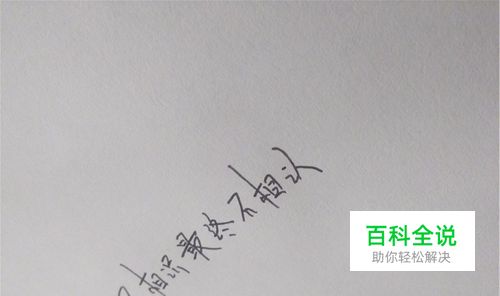 相识最终不相认
百科全说
助你轻松解决